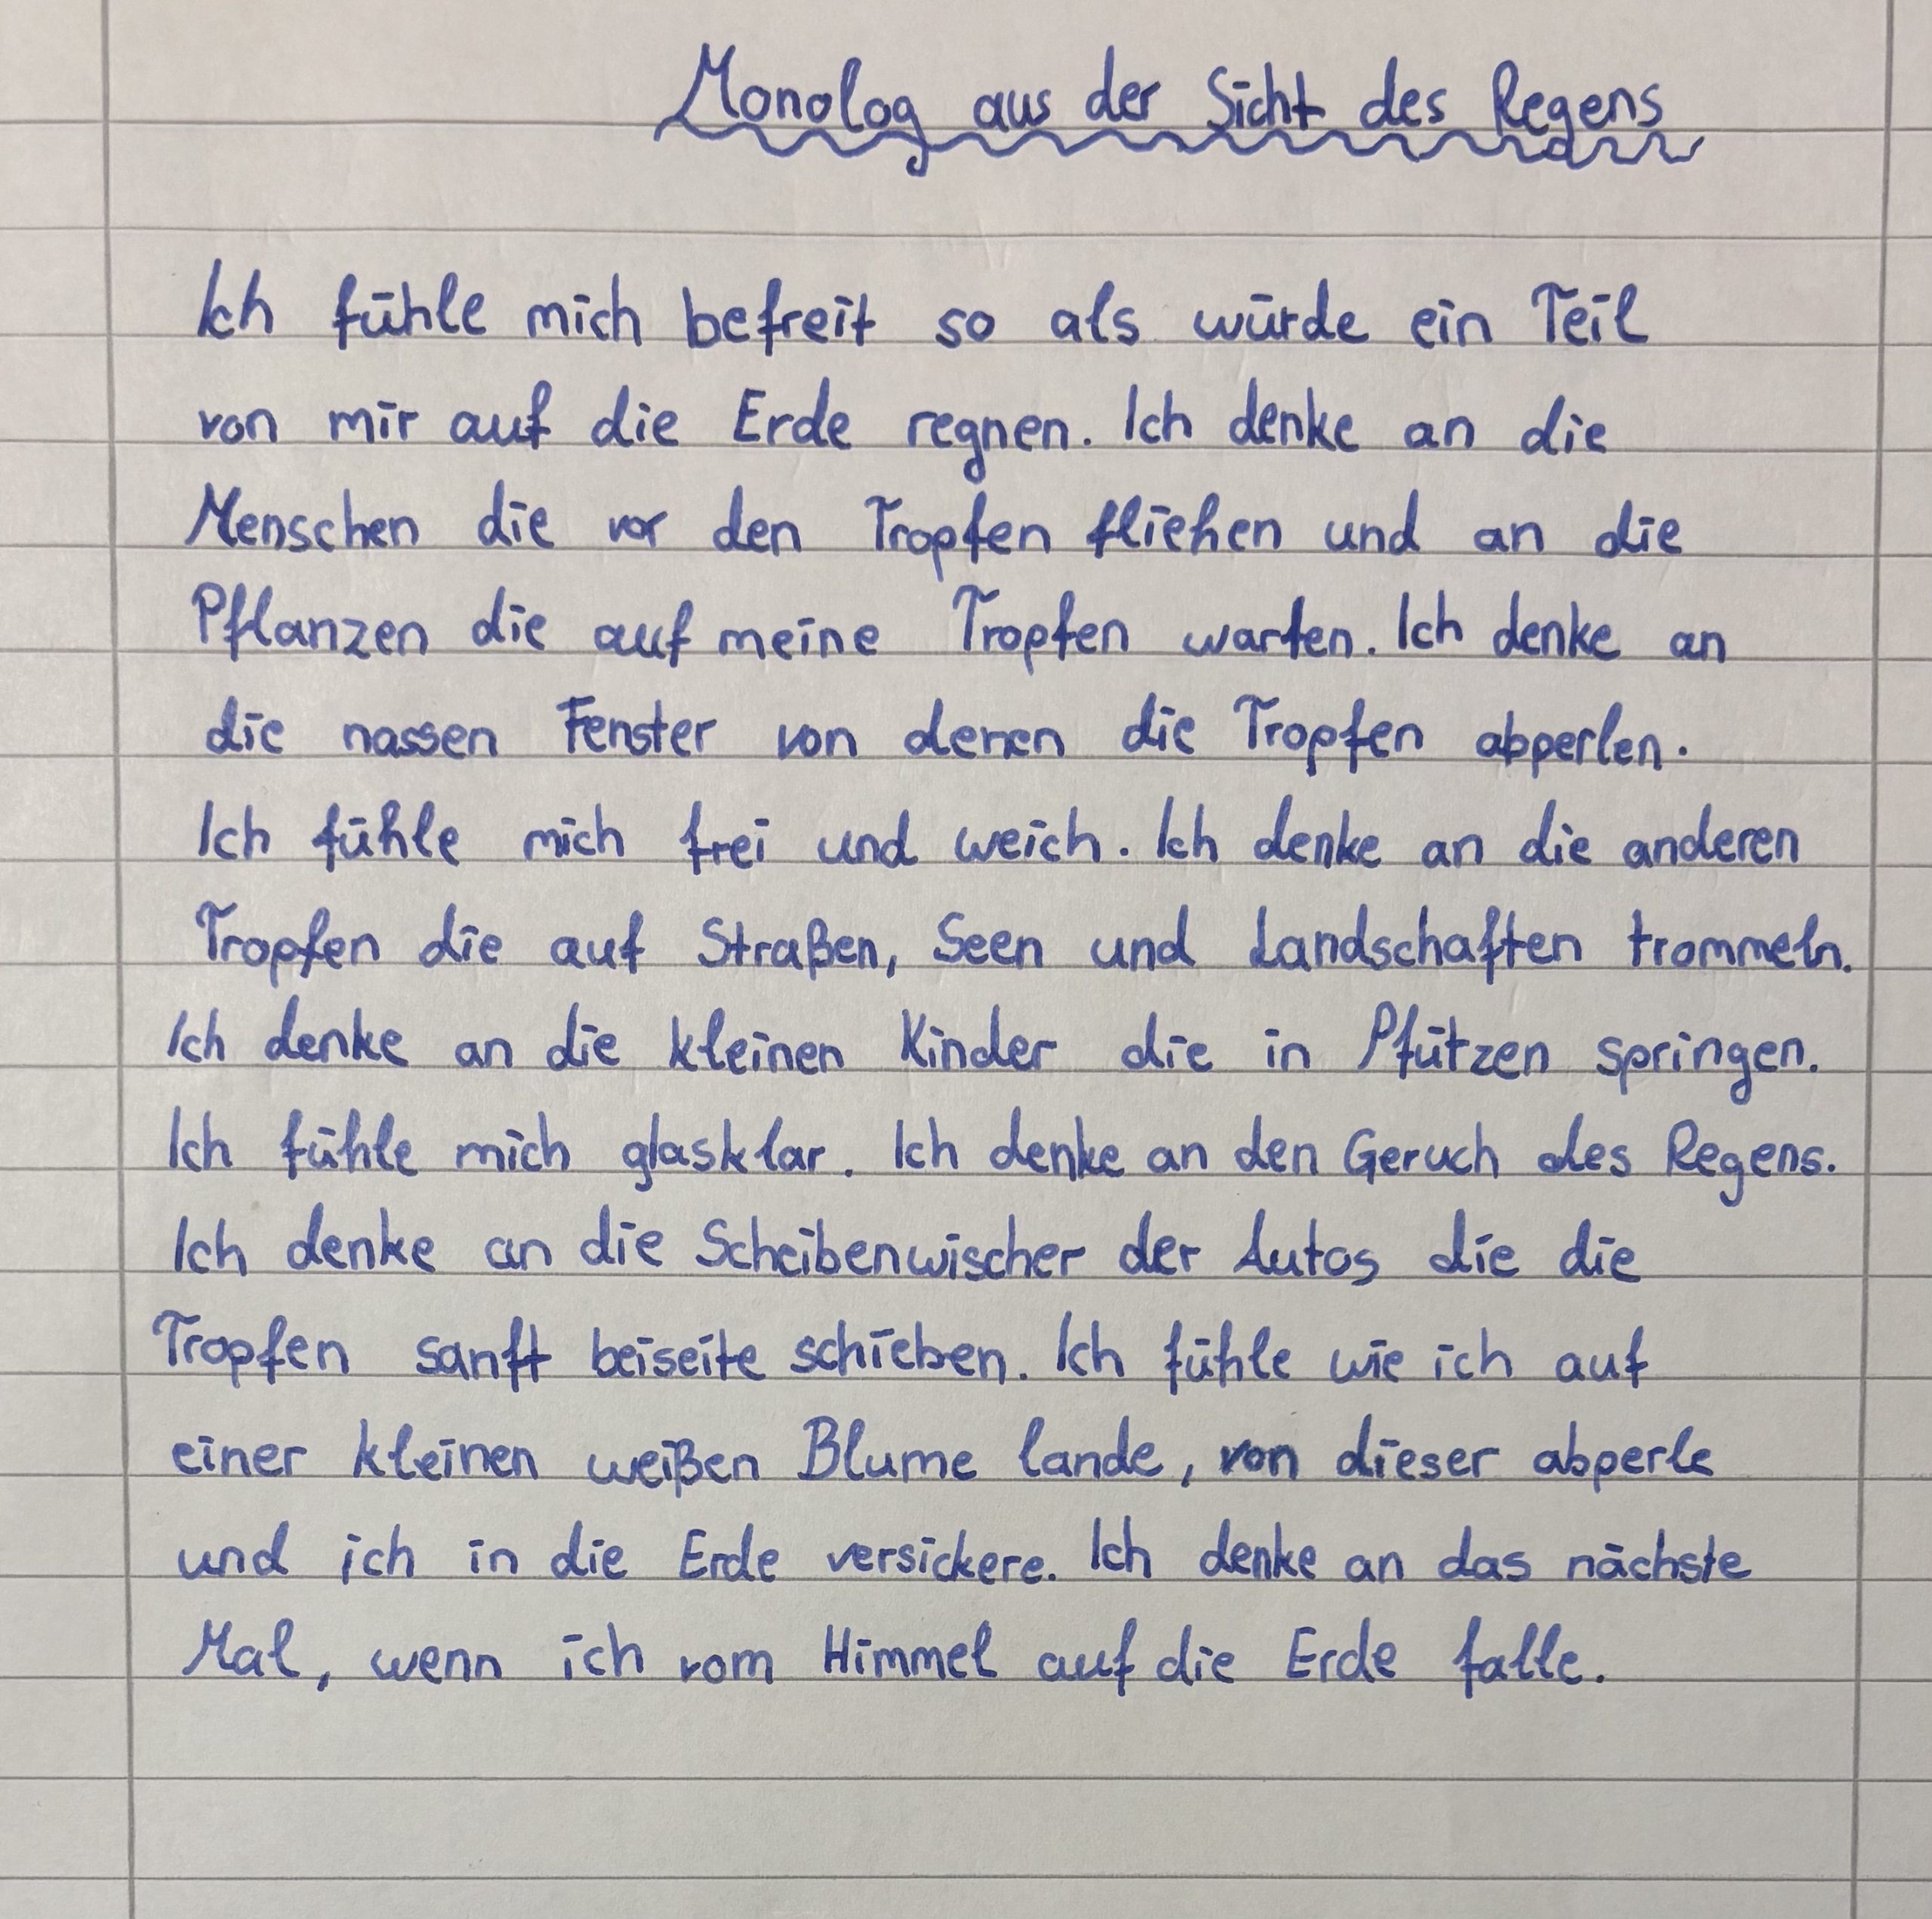 Monolog aus der Sicht des Regens
Ich fühle mich befreit so als würde ein Teil
von mir auf die Erde regnen. Ich denke an die
Menschen die vor den Tropfen fliehen und an die
Pflanzen die auf meine Tropfen warten. Ich denke an
die nassen Fenster von denen die Tropfen abperlen.
Ich fühle mich frei und weich. Ich denke an die anderen
Tropfen die auf Straßen, Seen und Landschaften trommeln.
Ich denke an die kleinen Kinder die in Pfützen springen.
Ich fühle mich glasklar. Ich denke an den Geruch des Regens.
Ich denke an die Scheibenwischer der Autos die die
Tropfen sanft beiseite schieben. Ich fühle wie ich auf
einer kleinen weißen Blume lande, von dieser abperle
und ich in die Erde versickere. Ich denke an das nächste
Mal, wenn ich vom Himmel auf die Erde falle.